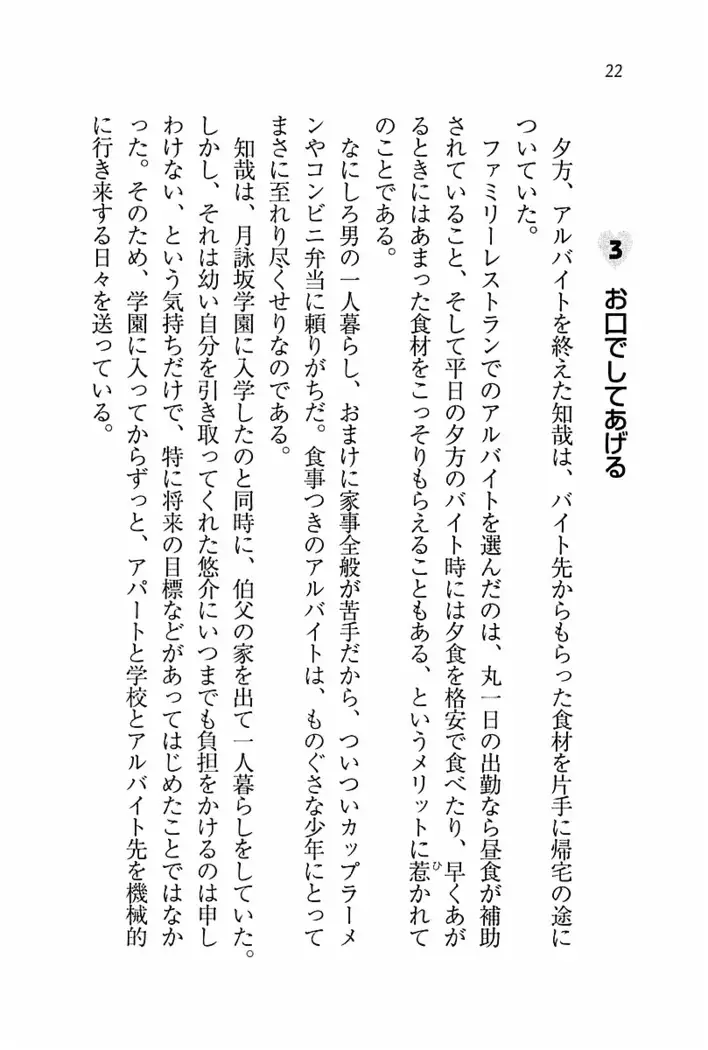 22
3 お口でしてあげる
夕方、アルバイトを終えた知哉は、バイト先からもらった食材を片手に帰宅の途に
ついていた。
ファミリーレストランでのアルバイトを選んだのは、丸一日の出勤なら昼食が補助
されていること、そして平日の夕方のバイト時には夕食を格安で食べたり、早くあが
るときにはあまった食材をこっそりもらえることもある、というメリットに惹かれて
ひ
のことである。
なにしろ男の一人暮らし、おまけに家事全般が苦手だから、ついついカップラーメ
ンやコンビニ弁当に頼りがちだ。食事つきのアルバイトは、ものぐさな少年にとって
まさに至れり尽くせりなのである。
知哉は、月詠坂学園に入学したのと同時に、伯父の家を出て一人暮らしをしていた。
しかし、それは幼い自分を引き取ってくれた悠介にいつまでも負担をかけるのは申し
わけない、という気持ちだけで、特に将来の目標などがあってはじめたことではなか
った。そのため、学園に入ってからずっと、アパートと学校とアルバイト先を機械的
に行き来する日々を送っている。